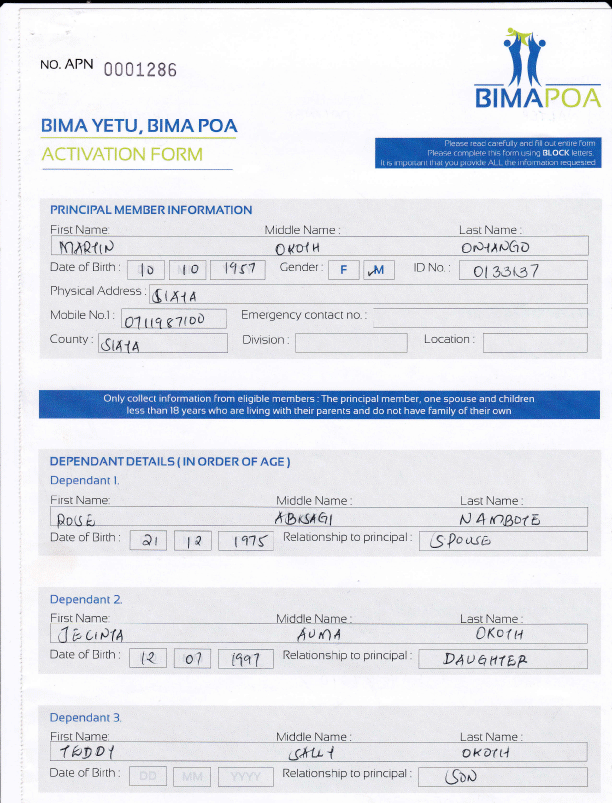 NO. APN 0001286
BIMAPOA
BIMA YETU, BIMA POA
ACTIVATION FORM
Please read carefully and fill out entire form
Please complete this form using BLOCK letters.
It is important that you provide ALL the information requested
PRINCIPAL MEMBER INFORMATION
First Name: Middle Name : Last Name :
MARTIN OKOTH ONYANGO
Date of Birth : 10 10 1957 Gender : F M ID No. : 0133137
Physical Address : SIAYA
Mobile No.1 : 0711987100 Emergency contact no. :
County : SIAYA Division : Location :
Only collect information from eligible members : The principal member, one spouse and children
less than 18 years who are living with their parents and do not have family of their own
DEPENDANT DETAILS ( IN ORDER OF AGE )
Dependant 1.
First Name: Middle Name : Last Name :
ROSE ABISAGI NAMBOYE
Date of Birth : 21 12 1975 Relationship to principal : SPOUSE
Dependant 2.
First Name: Middle Name : Last Name :
JECINTA AUMA OKOTH
Date of Birth : 12 07 1997 Relationship to principal : DAUGHTER
Dependant 3.
First Name: Middle Name : Last Name :
TEDDY OKOTH
Date of Birth : DD MM YYYY Relationship to principal : SON